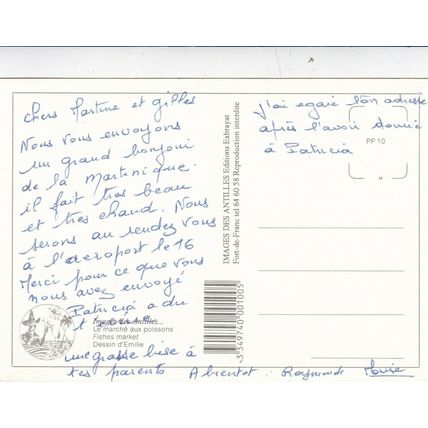 Chers Martine et Gilles
Nous vous envoyons
un grand bonjour
de la Martinique.
il fait très beau
et très chaud. Nous
serons au rendez vous
à l'aeroport le 16
Merci pour ce que vous
nous avez envoyé
Patricia a du
Le marché aux poissons
Fishes market
Dessin d'Emilie
une grosse bise à
tes parents A bientot. Raymonde
IMAGES DES ANTILLES Editions Exbrayat
Fort-de-Franc tel 64 60 58 Reproduction interdite
3 349740 001005
J'ai egaré ton adresse
après l'avoir donné
à Patricia
PP 10